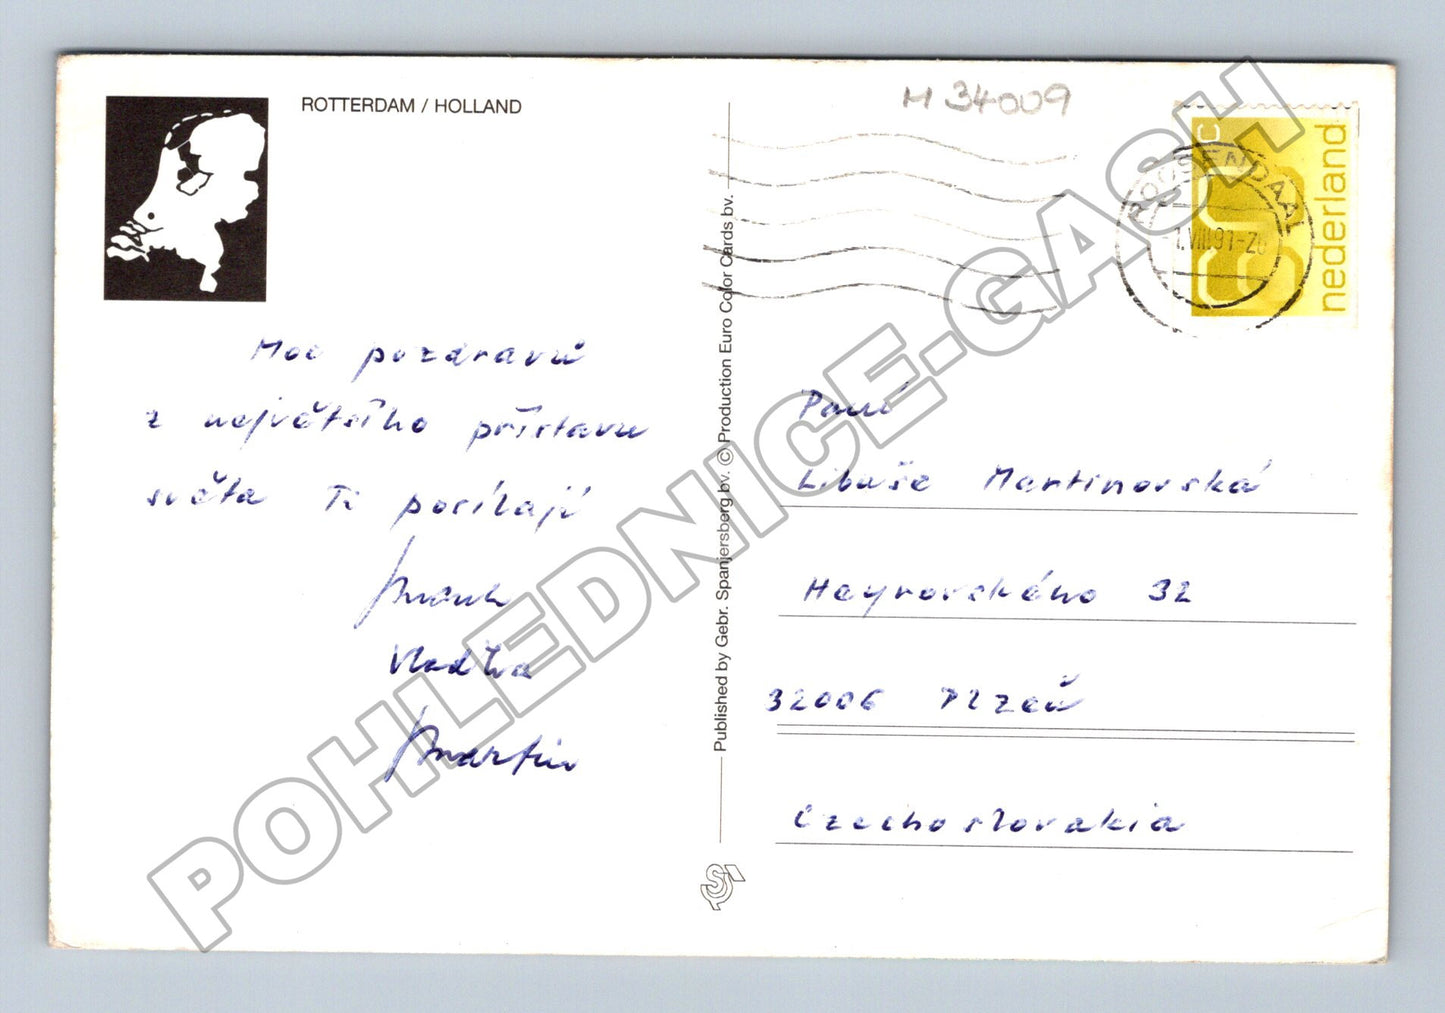 ROTTERDAM / HOLLAND
M 34009
c
nederland
ROOSENDAAL
1.VIII.91
Moc pozdravů
z největšího přístavu
světa Ti posílají
Vlaďka
Martin
Published by Gebr. Spanjersberg bv. © Production Euro Color Cards bv.
Paní
Libuše Martinovská
Heyrovského 32
32006 Plzeň
Czechoslovakia
POHLEDNICE-GASH